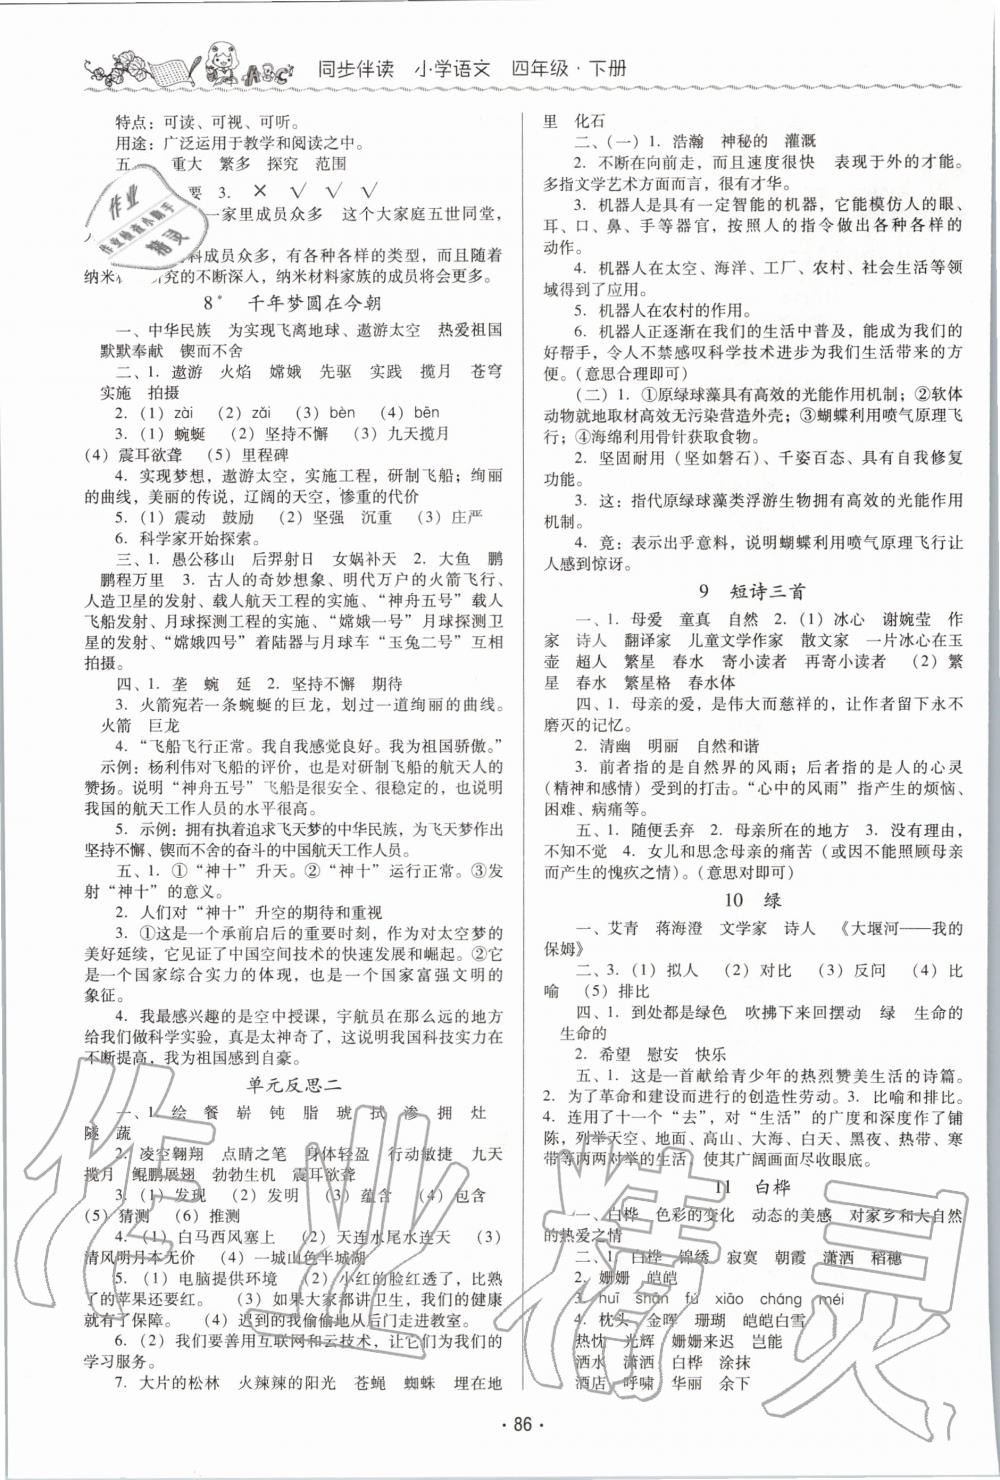 同步伴读 小学语文 四年级·下册
特点：可读、可视、可听。
用途：广泛运用于教学和阅读之中。
五 重大 繁多 探究 范围
要 3. × √ √ √
一家里成员众多 这个大家庭五世同堂，
料成员众多，有各种各样的类型，而且随着
纳米 研究的不断深入，纳米材料家族的成员将会更多。
8* 千年梦圆在今朝
一、中华民族 为实现飞离地球、遨游太空 热爱祖国
默默奉献 锲而不舍
二、1. 遨游 火焰 嫦娥 先驱 实践 揽月 苍穹
实施 拍摄
2.（1）zài （2）zǎi （3）bèn （4）bēn
3.（1）蜿蜒 （2）坚持不懈 （3）九天揽月
（4）震耳欲聋 （5）里程碑
4. 实现梦想，遨游太空，实施工程，研制飞船；绚丽
的曲线，美丽的传说，辽阔的天空，惨重的代价
5.（1）震动 鼓励 （2）坚强 沉重 （3）庄严
6. 科学家开始探索。
三、1. 愚公移山 后羿射日 女娲补天 2. 大鱼 鹏
鹏程万里 3. 古人的奇妙想象、明代万户的火箭飞行、
人造卫星的发射、载人航天工程的实施、“神舟五号”载人
飞船发射、月球探测工程的实施、“嫦娥一号”月球探测卫
星的发射、“嫦娥四号”着陆器与月球车“玉兔二号”互相
拍摄。
四、1. 垄 蜿 延 2. 坚持不懈 期待
3. 火箭宛若一条蜿蜒的巨龙，划过一道绚丽的曲线。
火箭 巨龙
4.“飞船飞行正常。我自我感觉良好。我为祖国骄傲。”
示例：杨利伟对飞船的评价，也是对研制飞船的航天人的
赞扬。说明“神舟五号”飞船是很安全、很稳定的，也说明我
国的航天工作人员的水平很高。
5. 示例：拥有执着追求飞天梦的中华民族，为飞天梦作出
坚持不懈、锲而不舍的奋斗的中国航天工作人员。
五、1. ①“神十”升天。②“神十”运行正常。③发
射“神十”的意义。
2. 人们对“神十”升空的期待和重视
3. ①这是一个承前启后的重要时刻，作为对太空梦的
美好延续，它见证了中国空间技术的快速发展和崛起。②它
是一个国家综合实力的体现，也是一个国家富强文明的
象征。
4. 我最感兴趣的是空中授课，宇航员在那么远的地方
给我们做科学实验，真是太神奇了，这说明我国科技实力在
不断提高，我为祖国感到自豪。
单元反思二
一、1. 绘 餐 崭 钝 脂 琥 拭 渗 拥 灶
隧 蔬
2. 凌空翱翔 点睛之笔 身体轻盈 行动敏捷 九天
揽月 鲲鹏展翅 勃勃生机 震耳欲聋
3.（1）发现 （2）发明 （3）蕴含 （4）包含
（5）猜测 （6）推测
4.（1）白马西风塞上 （2）天连水尾水连天 （3）
清风明月本无价 （4）一城山色半城湖
5.（1）电脑提供环境 （2）小红的脸红透了，比熟
了的苹果还要红。（3）如果大家都讲卫生，我们的健康
就有了保障。（4）迟到的我偷偷地从后门走进教室。
6.（2）我们要善用互联网和云技术，让它们为我们的
学习服务。
7. 大片的松林 火辣辣的阳光 苍蝇 蜘蛛 埋在地
里 化石
二、（一）1. 浩瀚 神秘的 灌溉
2. 不断在向前走，而且速度很快 表现于外的才能。
多指文学艺术方面而言，很有才华。
3. 机器人是具有一定智能的机器，它能模仿人的眼、
耳、口、鼻、手等器官，按照人的指令做出各种各样的
动作。
4. 机器人在太空、海洋、工厂、农村、社会生活等领
域得到了应用。
5. 机器人在农村的作用。
6. 机器人正逐渐在我们的生活中普及，能成为我们的
好帮手，令人不禁感叹科学技术进步为我们生活带来的方
便。（意思合理即可）
（二）1. ①原绿球藻具有高效的光能作用机制；②软体
动物就地取材高效无污染营造外壳；③蝴蝶利用喷气原理飞
行；④海绵利用骨针获取食物。
2. 坚固耐用（坚如磐石）、千姿百态、具有自我修复
功能。
3. 这：指代原绿球藻类浮游生物拥有高效的光能作用
机制。
4. 竟：表示出乎意料，说明蝴蝶利用喷气原理飞行让
人感到惊讶。
9 短诗三首
一、1. 母爱 童真 自然 2.（1）冰心 谢婉莹 作
家 诗人 翻译家 儿童文学作家 散文家 一片冰心在玉
壶 超人 繁星 春水 寄小读者 再寄小读者 （2）繁
星 春水 繁星格 春水体
四、1. 母亲的爱，是伟大而慈祥的，让作者留下永不
磨灭的记忆。
2. 清幽 明丽 自然和谐
3. 前者指的是自然界的风雨；后者指的是人的心灵
（精神和感情）受到的打击。“心中的风雨”指产生的烦恼、
困难、病痛等。
五、1. 随便丢弃 2. 母亲所在的地方 3. 没有理由，
不知不觉 4. 女儿和思念母亲的痛苦（或因不能照顾母亲
而产生的愧疚之情）。（意思对即可）
10 绿
一、艾青 蒋海澄 文学家 诗人 《大堰河——我的
保姆》
二、3.（1）拟人 （2）对比 （3）反问 （4）比
喻 （5）排比
四、1. 到处都是绿色 吹拂下来回摆动 绿 生命的
生命的
2. 希望 慰安 快乐
五、1. 这是一首献给青少年的热烈赞美生活的诗篇。
2. 为了革命和建设而进行的创造性劳动。3. 比喻和排比。
4. 连用了十一个“去”，对“生活”的广度和深度作了铺
陈，列举天空、地面、高山、大海、白天、黑夜、热带、寒
带等两两对举的生活，使其广阔画面尽收眼底。
11 白桦
一、白桦 色彩的变化 动态的美感 对家乡和大自然
的热爱之情
二、1. 白桦 锦绣 寂寞 朝霞 潇洒 稻穗
2. 姗姗 皑皑
3. huī shān fú xiāo cháng méi
4. 枕头 金晖 珊瑚 皑皑白雪
热忱 光辉 姗姗来迟 岂能
洒水 潇洒 白桦 涂抹
酒店 呼啸 华丽 余下
· 86 ·
作业
作业检查小助手
精灵
作业精灵